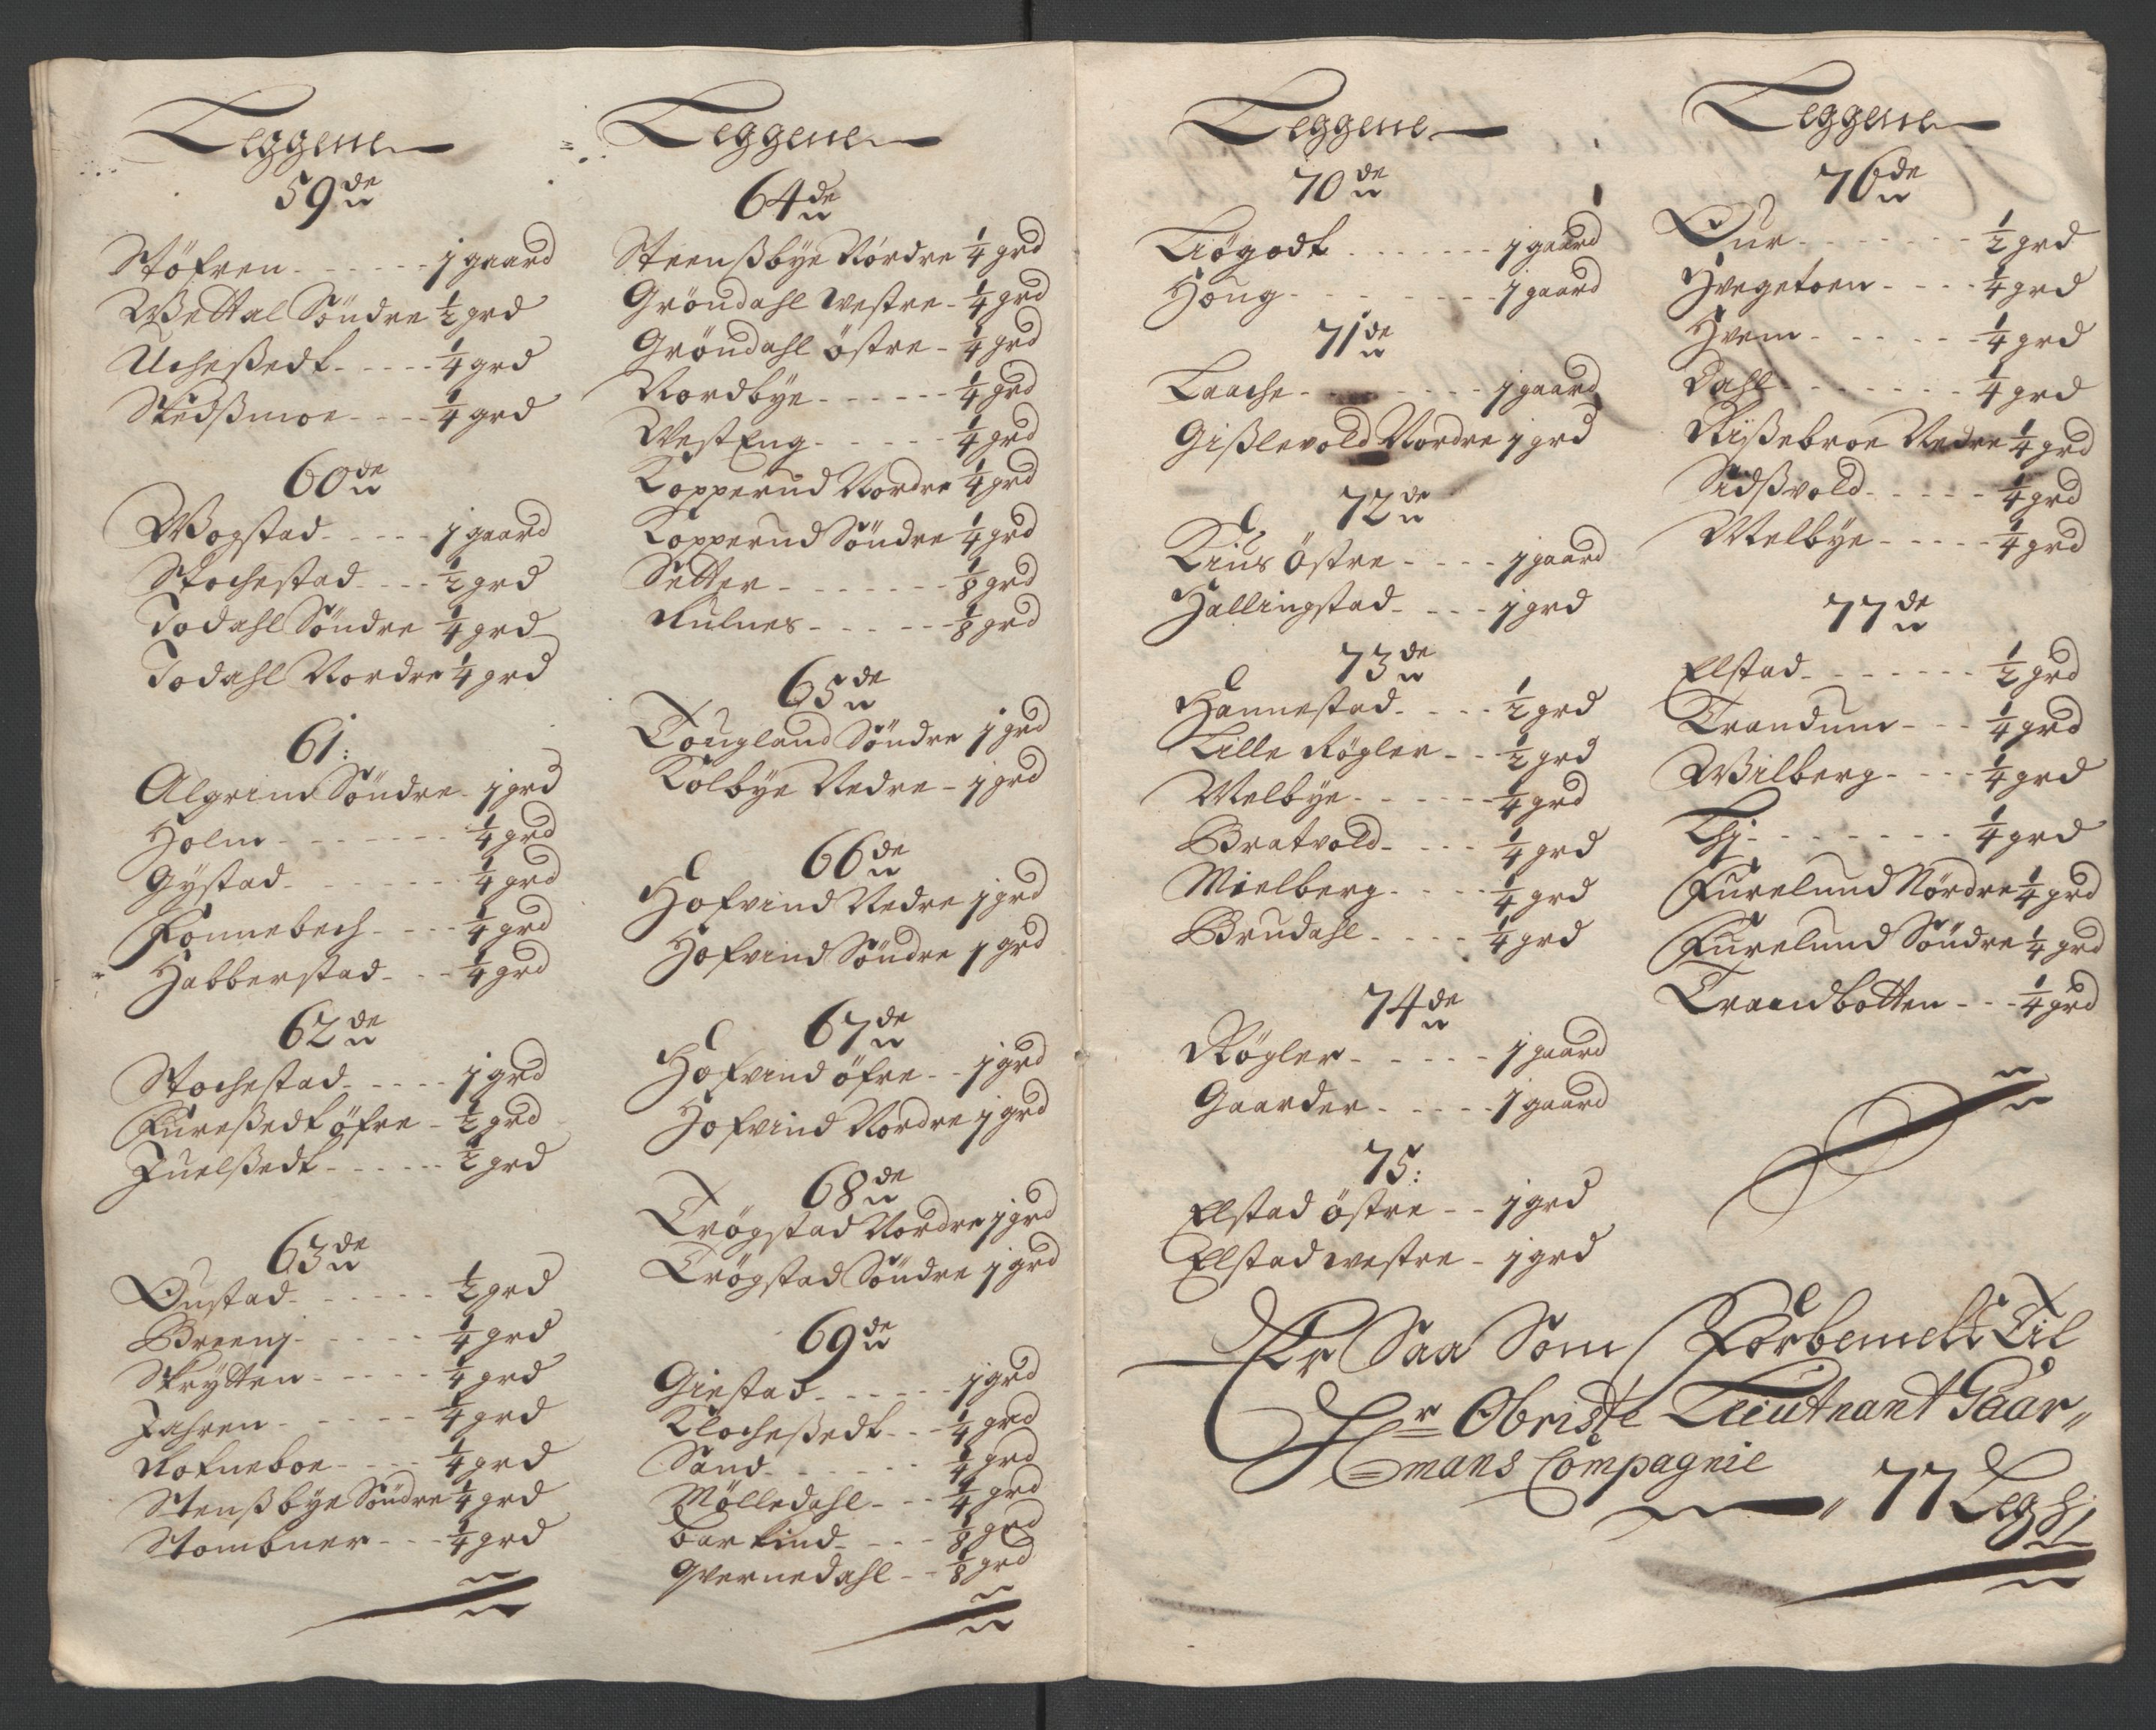 Leggene
59de
Støfren - - - - - 1 gaard
Wettal Söndre ½ grd
Ucheßedt - - - - ¼ grd
Skedßmoe - - - - ¼ grd
60de
Wogstad - - - - 1 gaard
Stochestad - - - ½ grd
Dodahl Söndre ¼ grd
Dodahl Nordre ¼ grd
61:
Algrim Söndre - 1 grd
Holm - - - - - - ¼ grd
Gystad - - - - - - ¼ grd
Fonnebech - - - - ¼ grd
Habberstad - - - ¼ grd
62de
Stochestad - - - - 1 grd
Fureßedt öfre - ½ grd
Juelßedt - - - - - ½ grd
63de
Oustad - - - - - - ½ grd
Breenj - - - - - ¼ grd
Skrytten - - - - - ¼ grd
Jahren - - - - - ¼ grd
Rofneboe - - - - ¼ grd
Stenßbye Söndre ¼ grd
Stombner - - - ¼ grd
Leggene
64de
Steenßbye Nordre ¼ grd
Gröndahl westre - ¼ grd
Gröndahl östre - ¼ grd
Nordbye - - - - - - ¼ grd
WestEng - - - - - ¼ grd
Kopperud Nordre ¼ grd
Kopperud Söndre ¼ grd
Setter - - - - - - - ⅛ grd
Kulnes - - - - - - ⅛ grd
65de
Tougland Söndre 1 grd
Kolbye Nedre - 1 grd
66de
Hofvind Nedre 1 grd
Hofvind Söndre 1 grd
67de
Hofvind öfre - - 1 grd
Hofvind Nordre 1 grd
68de
Trögstad Nordre 1 grd
Trögstad Söndre 1 grd
69de
Giestad - - - - - - 1 grd
Klocheßedt - - - ¼ grd
Sand - - - - - - ¼ grd
Mölledahl - - - ¼ grd
Barkind - - - - ⅛ grd
Qvernedahl - - ⅛ grd
Leggene
70de
Liögodt - - - - - - 1 gaard
Houg - - - - - - - - 1 gaard
71de
Laache - - - - - - - 1 gaard
Gißlevold Nordre 1 grd
72de
Kius Östre - - - - 1 gaard
Hallingstad - - - - 1 grd
73de
Hannestad - - - - ½ grd
Lille Rögler - - ½ grd
Melbye - - - - - ¼ grd
Bratvold - - - - ¼ grd
Mielberg - - - - ¼ grd
Brudahl - - - - ¼ grd
74de
Rögler - - - - - 1 gaard
Gaarder - - - - - 1 gaard
75:
Elstad östre - - 1 grd
Elstad westre - 1 grd
Leggene
76de
Our - - - - - - - ½ grd
Hvegetoen - - - - ¼ grd
Hvem - - - - - - ¼ grd
Dahl - - - - - - - ¼ grd
Rißebroe Nedre ¼ grd
Sidßvold - - - - - ¼ grd
Melbye - - - - - ¼ grd
77de
Elstad - - - - - - - ½ grd
Trandum - - - ¼ grd
Wilberg - - - - ¼ grd
Thj - - - - - - - ¼ grd
Furelund Nördre ¼ grd
Furelund Söndre ¼ grd
Traandbotten - - - ¼ grd
Er Saa Som Forbemelt Til
Hr Obriste Lieutnant Gaar„
mans Compagnie
„ 77 Legh